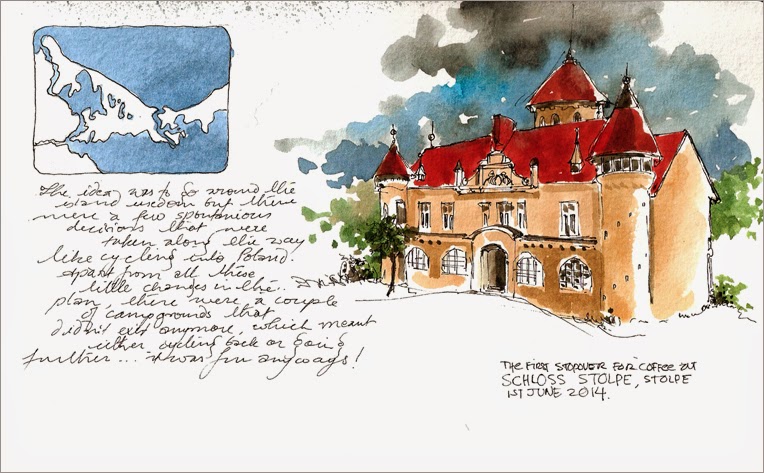 The idea was to go around the
island usedom but there
were a few spontanious
decisions that were
taken along the way
like cycling into Poland.
Apart from all these
little changes in the..
plan, there were a couple
of campgrounds that
didn't exit anymore, which meant
either cycling back or going
further... it was fun anyways!
THE FIRST STOPOVER FOR COFFEE AT
SCHLOSS STOLPE, STOLPE
1ST JUNE 2014.